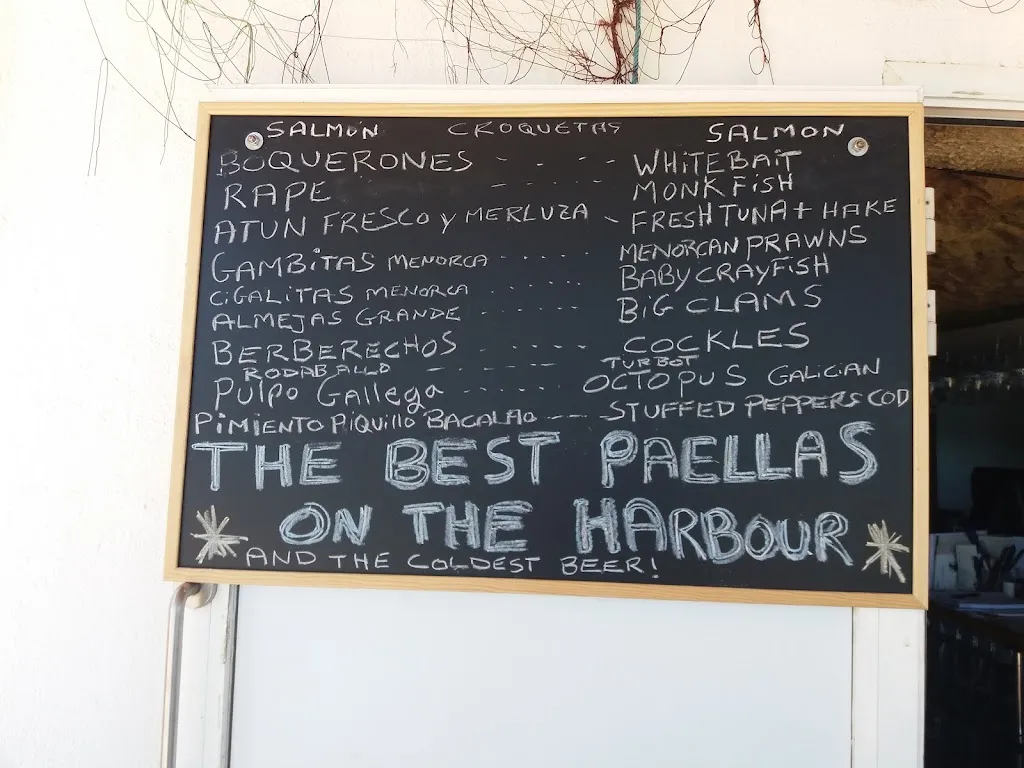 SALMON CROQUETAS SALMON
BOQUERONES - - - - WHITEBAIT
RAPE - - - - - MONKFISH
ATUN FRESCO y MERLUZA - FRESH TUNA + HAKE
GAMBITAS MENORCA ..... MENORCAN PRAWNS
CIGALITAS MENORCA ...... BABY CRAYFISH
ALMEJAS GRANDE ...... BIG CLAMS
BERBERECHOS - . . . . . COCKLES
RODABALLO - - - - - TURBOT
Pulpo Gallega ...... OCTOPUS GALICIAN
PIMIENTO PiQuillo BACALAO --- STUFFED PEPPERS COD
THE BEST PAELLAS
ON THE HARBOUR
AND THE COLDEST BEER!